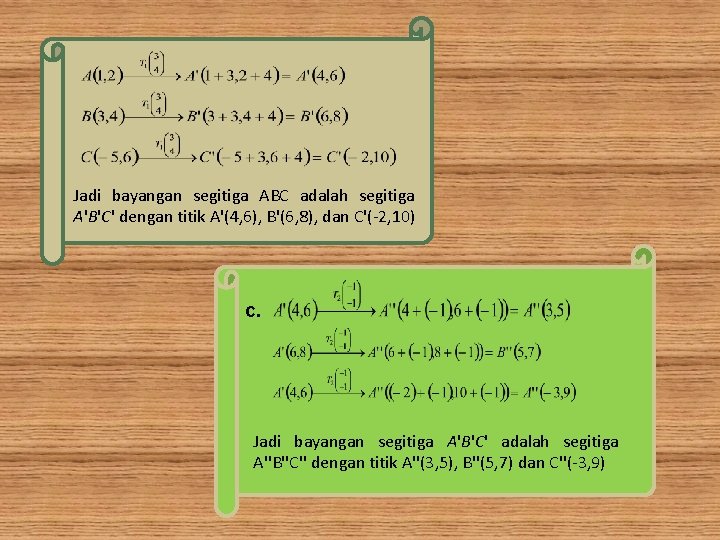 A(1,2) —T₁(3 4)→ A'(1+3,2+4)= A'(4,6)
B(3,4) —T₁(3 4)→ B'(3+3,4+4)= B'(6,8)
C(−5,6) —T₁(3 4)→ C'(−5+3,6+4)= C'(−2,10)
Jadi bayangan segitiga ABC adalah segitiga
A'B'C' dengan titik A'(4,6), B'(6,8), dan C'(-2,10)
c. A'(4,6) —T₂(−1 −1)→ A''(4+(−1),6+(−1))= A''(3,5)
A'(6,8) —T₂(−1 −1)→ A''(6+(−1),8+(−1))= B''(5,7)
A'(4,6) —T₂(−1 −1)→ A''((−2)+(−1),10+(−1))= A''(−3,9)
Jadi bayangan segitiga A'B'C' adalah segitiga
A"B"C" dengan titik A"(3,5), B"(5,7) dan C"(-3,9)